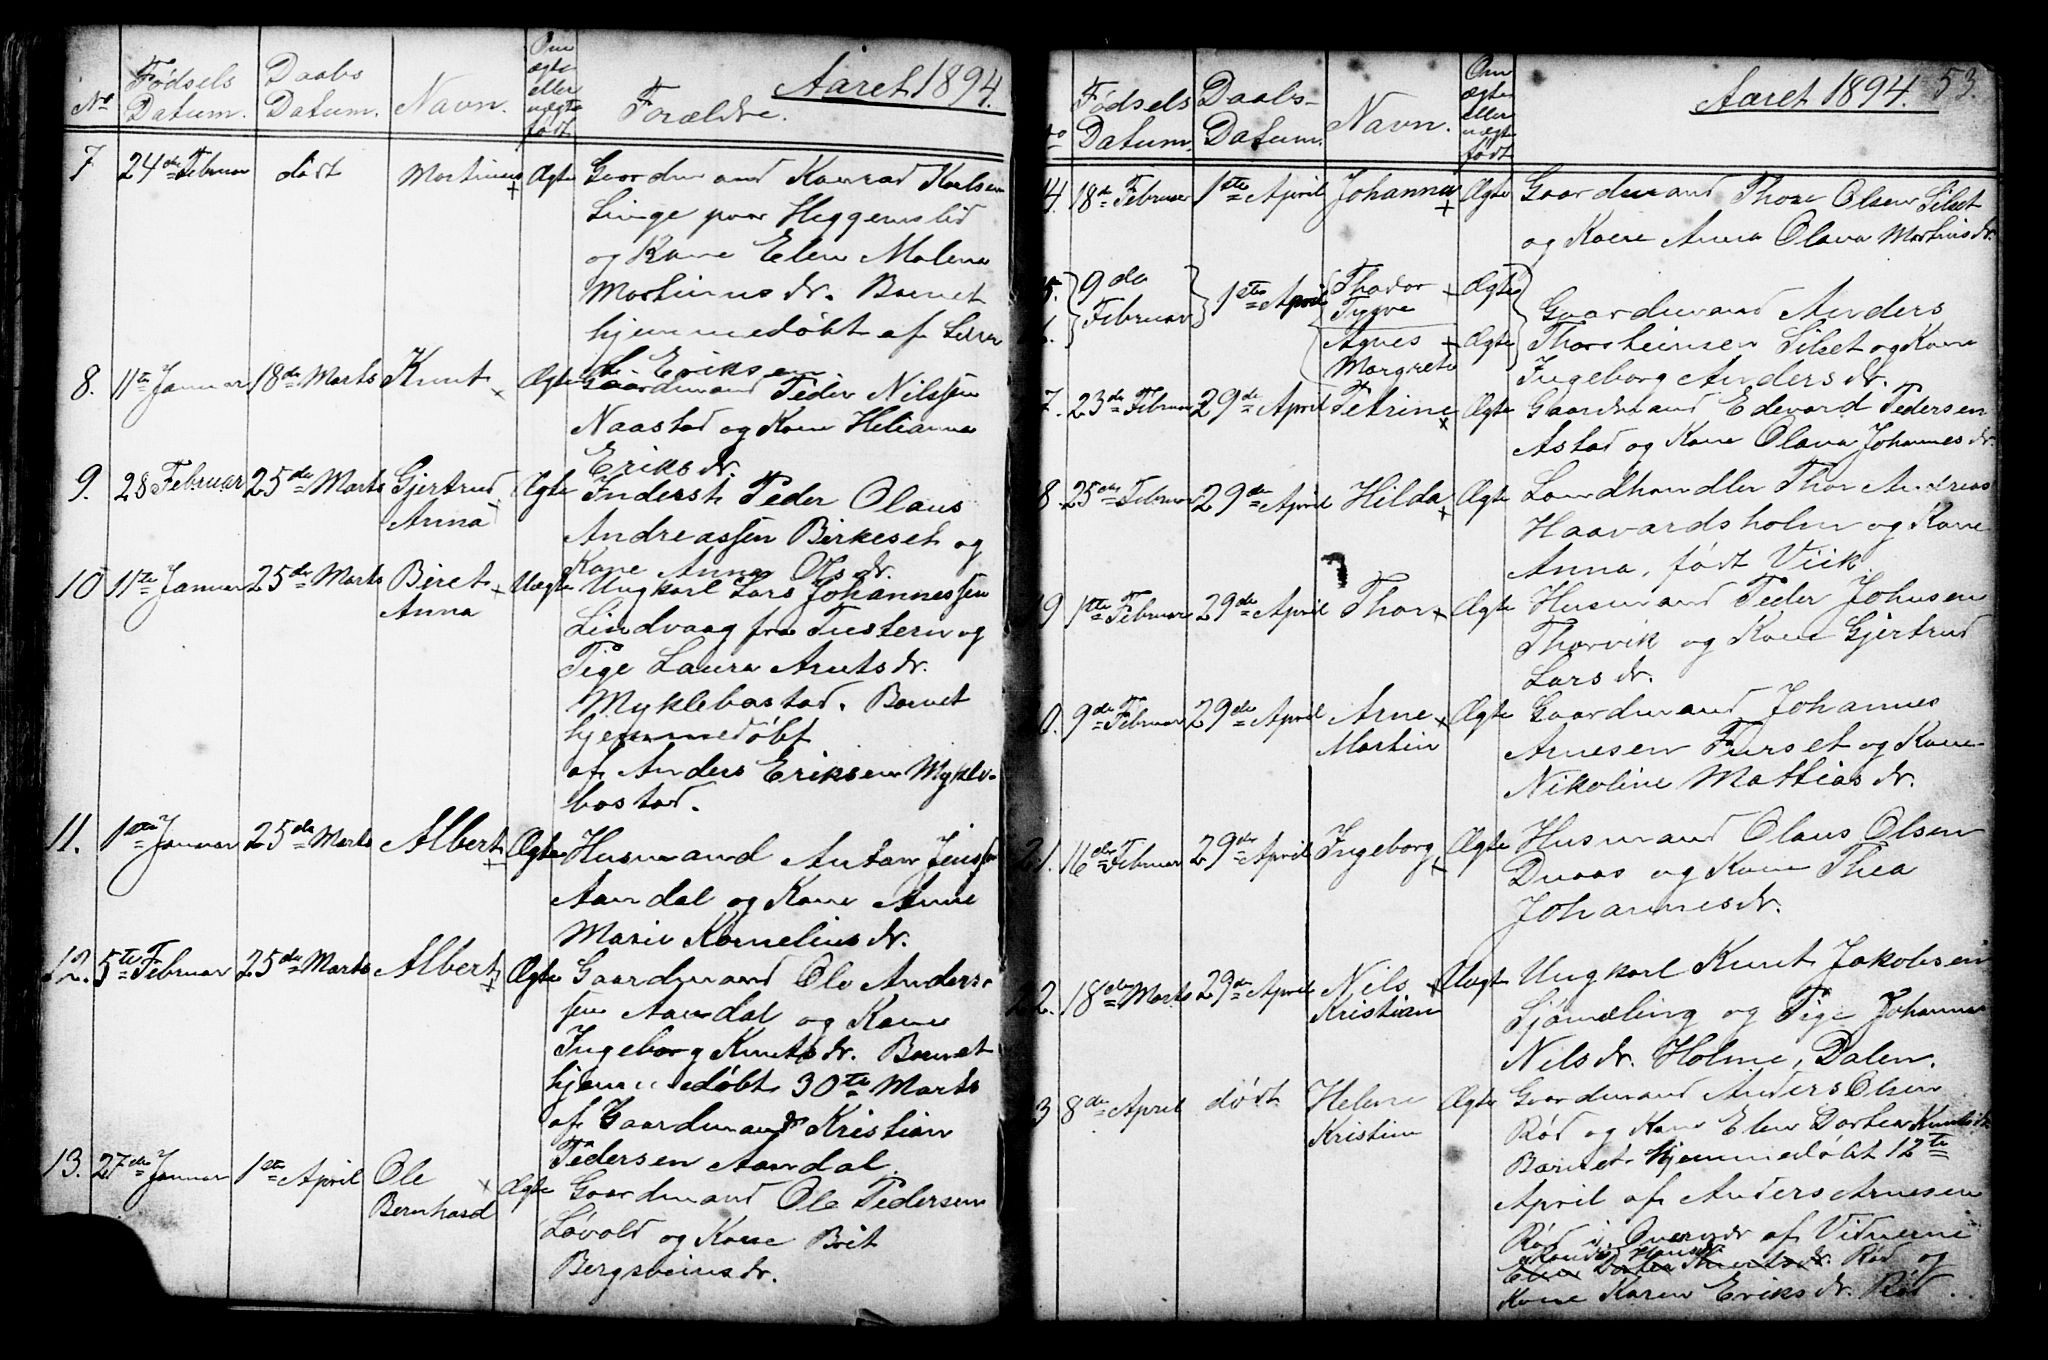 Aaret 1894.
No Fødsels Datum. Daabs Datum. Navn. Om ægte eller uægte født Forældre.
7 24de Februar dødt Martinus Ægte Gaardmand Konrad Karlsen
Linge paa Heggemslid
og Kone Elen Malena
Martinusdr. Barnet
hjemmedøbt af Lars
Eriksen
8. 11te Januar 18de Marts Knut Ægte Gaardmand Peder Nilssen
Naastad og Kone Helianna
Eriksdr.
9. 28 Februar 25de Marts Gjertrud Ægte Inderst Peder Olaus
Anna Andreassen Birkeset og
Kone Anna Olsdr.
10 11te Januar 25de Marts Beret Uægte Ungkarl Lars Johannessen
Anna Lindvaag fra Tustern og
Pige Laura Arntsdr.
Myklebostad. Barnet
hjemmedøbt
af Anders Eriksen Mykle-
bostad.
11. 1ste Januar 25de Marts Albert Ægte Husmand Anton Jenssen
Aandal og Kone Anne
Marie Korneliusdr.
12. 5te Februar 25de Marts Albert Ægte Gaardmand Ole Anders-
sen Aandal og Kone
Ingeborg Knutsdr. Barnet
hjemmedøbt 30te Marts
af Gaardmand Kristian
Pedersen Aandal.
13. 27de Januar 1ste April Ole Ægte Gaardmand Ole Pedersen
Bernhard Løvold og Kone Brit
Bergsveinsdr.
Aaret 1894. 53.
Fødsels Datum. Daabs- Datum. Navn. Om ægte eller uægte født
4. 18de Februar 1ste April Johanna Ægte Gaardmand Thore Olsen Silset
og Kone Anna Olava Martinsdr.
5. 9de Februar 1ste April Thodor Ægte
Tygve Gaardmand Anders
6. Agnes Ægte Thorsteinsen Silset og Kone
Margrete Ingeborg Andersdr.
7. 23de Februar 29de April Petrine Ægte Gaardmand Edevard Pedersen
Astad og Kone Olava Johannesdr.
8. 25de Februar 29de April Hilda Ægte Landhandler Thor Andreas
Haavardsholm og Kone
Anna, født Viik.
19 1ste Februar 29de April Thor Ægte Husmand Peder Johnsen
Thorvik og Kone Gjertrud
Larsdr.
0. 9de Februar 29de April Arne Ægte Gaardmand Johannes
Martin Arnesen Furset og Kone
Nikoline Mattiasdr.
21. 16de Februar 29de April Ingeborg Ægte Husmand Olaus Olsen
Duaas og Kone Thea
Johannesdr.
22. 18de Marts 29de April Nils Uægte Ungkarl Knut Jakobsen
Kristian Sjømæling og Pige Johanna
Nilsdr. Holme, Dalen.
3 8de April dødt Helene Ægte Gaardmand Anders Olsen
Kristine Rød og Kone Elen Dortea Knutsdr.
Barnet hjemmedøbt 12te
April af Anders Arnesen
Rød i Overvær af Vidnerne
Hansdr.
Elen Dortea Knutsdr. Rød og
Kone Karen Eriksdr. Rød.